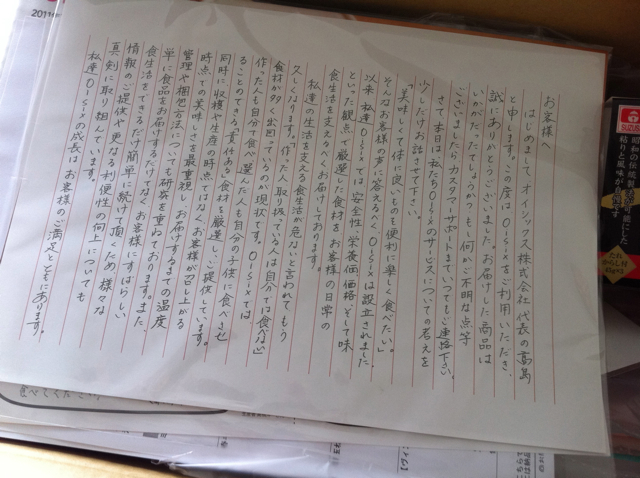 お客様へ
はじめまして、オイシックス株式会社代表の高島
と申します。この度はOisixをご利用いただき、
誠にありがとうございました。お届けした商品は
いかがだったでしょうか?もし何かご不明な点等
ございましたらカスタマーサポートまでいつでもご連絡下さい。
さて本日は、私たちOisixのサービスについての考えを
少しだけお話させて下さい。
「美味しくて体に良いものを便利に楽しく食べたい。」
そんなお客様の声に答えるべく、Oisixは設立されました。
以来、私達Oisixでは、安全性、栄養価、価格、そして味
といった観点で厳選した食材をお客様の日常の
食生活を支えるべくお届けしております。
私達の生活を支える食生活が危ないと言われてもう
久しくなります。「作った人、取り扱っている人は自分では食べない」
食材が多く出回っているのが現状です。Oisixでは
作った人も自分で食べ、選んだ人も自分の子供に食べさせ
ることのできる「責任ある」食材を厳選し、ご提供しています。
同時に収穫や生産の時点ではなく、お客様が召し上がる
時点での美味しさを最重視し、お届けするまでの温度
管理や梱包方法についても研究を重ねております。また、
単に食品をお届けするだけでなく、お客様にすばらしい
食生活をできるだけ簡単に続けて頂くため、様々な
情報のご提供や更なる利便性の向上についても
真剣に取り組んでいます。
私達Oisixの成長は、お客様のご満足とともにあります。
2011
食べてください
昭和の伝統製
粘りと風味が
たれ
からし付
【ヴィン